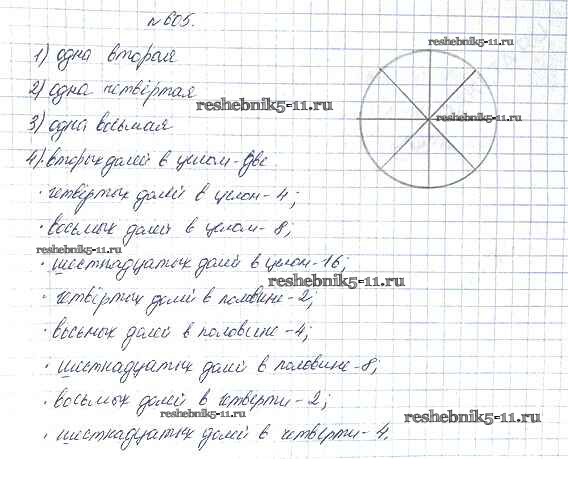 №605.
reshebnik5-11.ru
1) одна вторая
2) одна четвёртая
reshebnik5-11.ru
reshebnik5-11.ru
3) одна восьмая
4) • вторых долей в целом - две
• четвёртых долей в целом - 4;
• восьмых долей в целом - 8;
reshebnik5-11.ru
• шестнадцатых долей в целом - 16;
reshebnik5-11.ru
• четвёртых долей в половине - 2;
• восьмых долей в половине - 4;
• шестнадцатых долей в половине - 8;
• восьмых долей в четверти - 2;
reshebnik5-11.ru
reshebnik5-11.ru
• шестнадцатых долей в четверти - 4.